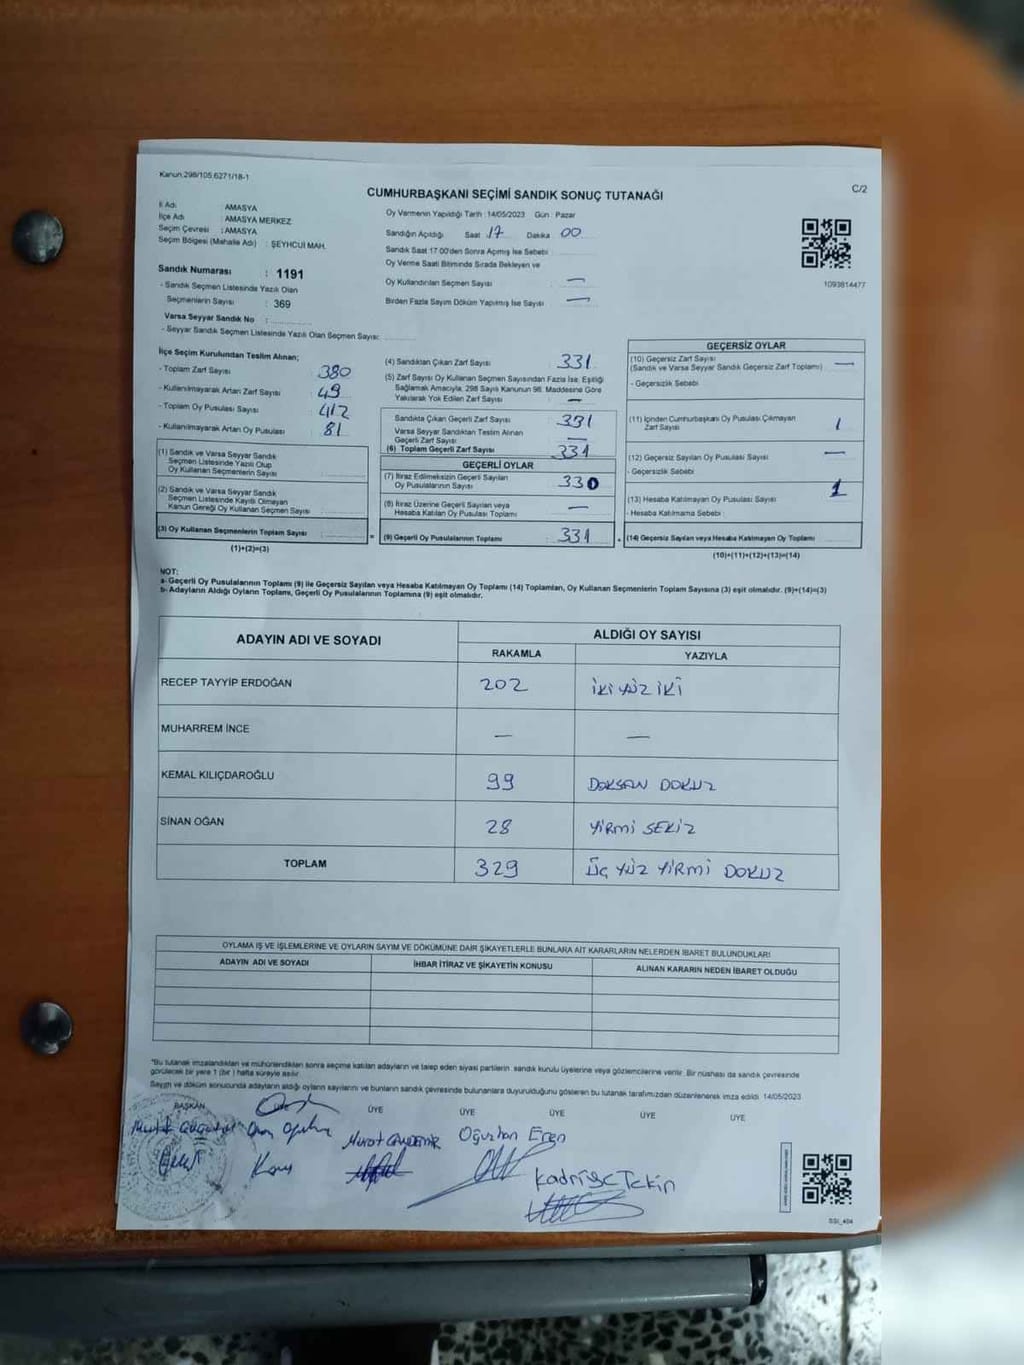 Kanun.298/105.6271/18-1
CUMHURBAŞKANI SEÇİMİ SANDIK SONUÇ TUTANAĞI
C/2
İl Adı : AMASYA
İlçe Adı : AMASYA MERKEZ
Seçim Çevresi : AMASYA
Seçim Bölgesi (Mahalle Adı) : ŞEYHCUİ MAH.
Oy Vermenin Yapıldığı Tarih : 14/05/2023 Gün : Pazar
Sandığın Açıldığı Saat 17 Dakika 00
Sandık Saat 17:00'den Sonra Açılmış İse Sebebi
Oy Verme Saati Bitiminde Sırada Bekleyen ve
Oy Kullandırılan Seçmen Sayısı : —
Birden Fazla Sayım Döküm Yapılmış İse Sayısı —
1093814477
Sandık Numarası : 1191
- Sandık Seçmen Listesinde Yazılı Olan
Seçmenlerin Sayısı : 369
Varsa Seyyar Sandık No :
- Seyyar Sandık Seçmen Listesinde Yazılı Olan Seçmen Sayısı:
İlçe Seçim Kurulundan Teslim Alınan;
- Toplam Zarf Sayısı : 380
- Kullanılmayarak Artan Zarf Sayısı : 49
- Toplam Oy Pusulası Sayısı : 412
- Kullanılmayarak Artan Oy Pusulası : 81
(1) Sandık ve Varsa Seyyar Sandık
Seçmen Listesinde Yazılı Olup
Oy Kullanan Seçmenlerin Sayısı :
(2) Sandık ve Varsa Seyyar Sandık
Seçmen Listesinde Kayıtlı Olmayan
Kanun Gereği Oy Kullanan Seçmen Sayısı :
(3) Oy Kullanan Seçmenlerin Toplam Sayısı :
(1)+(2)=(3)
(4) Sandıktan Çıkan Zarf Sayısı : 331
(5) Zarf Sayısı Oy Kullanan Seçmen Sayısından Fazla İse, Eşitliği
Sağlamak Amacıyla, 298 Sayılı Kanunun 98. Maddesine Göre
Yakılarak Yok Edilen Zarf Sayısı : —
Sandıkta Çıkan Geçerli Zarf Sayısı : 331
Varsa Seyyar Sandıktan Teslim Alınan
Geçerli Zarf Sayısı : —
(6) Toplam Geçerli Zarf Sayısı : 331
GEÇERLİ OYLAR
(7) İtiraz Edilmeksizin Geçerli Sayılan
Oy Pusulalarının Sayısı : 330
(8) İtiraz Üzerine Geçerli Sayılan veya
Hesaba Katılan Oy Pusulası Toplamı : —
(9) Geçerli Oy Pusulalarının Toplamı : 331
GEÇERSİZ OYLAR
(10) Geçersiz Zarf Sayısı
(Sandık ve Varsa Seyyar Sandık Geçersiz Zarf Toplamı) —
- Geçersizlik Sebebi
(11) İçinden Cumhurbaşkanı Oy Pusulası Çıkmayan
Zarf Sayısı : 1
(12) Geçersiz Sayılan Oy Pusulası Sayısı : —
- Geçersizlik Sebebi
(13) Hesaba Katılmayan Oy Pusulası Sayısı : 1
- Hesaba Katılmama Sebebi :
(14) Geçersiz Sayılan veya Hesaba Katılmayan Oy Toplamı :
(10)+(11)+(12)+(13)=(14)
NOT:
a- Geçerli Oy Pusulalarının Toplamı (9) ile Geçersiz Sayılan veya Hesaba Katılmayan Oy Toplamı (14) Toplamları, Oy Kullanan Seçmenlerin Toplam Sayısına (3) eşit olmalıdır. (9)+(14)=(3)
b- Adayların Aldığı Oyların Toplamı, Geçerli Oy Pusulalarının Toplamına (9) eşit olmalıdır.
ADAYIN ADI VE SOYADI
ALDIĞI OY SAYISI
RAKAMLA YAZIYLA
RECEP TAYYİP ERDOĞAN 202 İKİ YÜZ İKİ
MUHARREM İNCE — —
KEMAL KILIÇDAROĞLU 99 DOKSAN DOKUZ
SİNAN OĞAN 28 YİRMİ SEKİZ
TOPLAM 329 ÜÇ YÜZ YİRMİ DOKUZ
OYLAMA İŞ VE İŞLEMLERİNE VE OYLARIN SAYIM VE DÖKÜMÜNE DAİR ŞİKAYETLERLE BUNLARA AİT KARARLARIN NELERDEN İBARET BULUNDUKLARI
ADAYIN ADI VE SOYADI İHBAR İTİRAZ VE ŞİKAYETİN KONUSU ALINAN KARARIN NEDEN İBARET OLDUĞU
"Bu tutanak imzalandıktan ve mühürlendikten sonra seçime katılan adayların ve talep eden siyasi partilerin sandık kurulu üyelerine veya gözlemcilerine verilir. Bir nüshası da sandık çevresinde
görülecek bir yere 1 (bir ) hafta süreyle asılır.
Sayım ve döküm sonucunda adayların aldığı oyların sayılarını ve bunların sandık çevresinde bulunanlara duyurulduğunu gösteren bu tutanak tarafımızdan düzenlenerek imza edildi. 14/05/2023
BAŞKAN ÜYE ÜYE ÜYE ÜYE ÜYE
Murat Oğuzhan Eren
Kadriye Tekin
SSİ_404